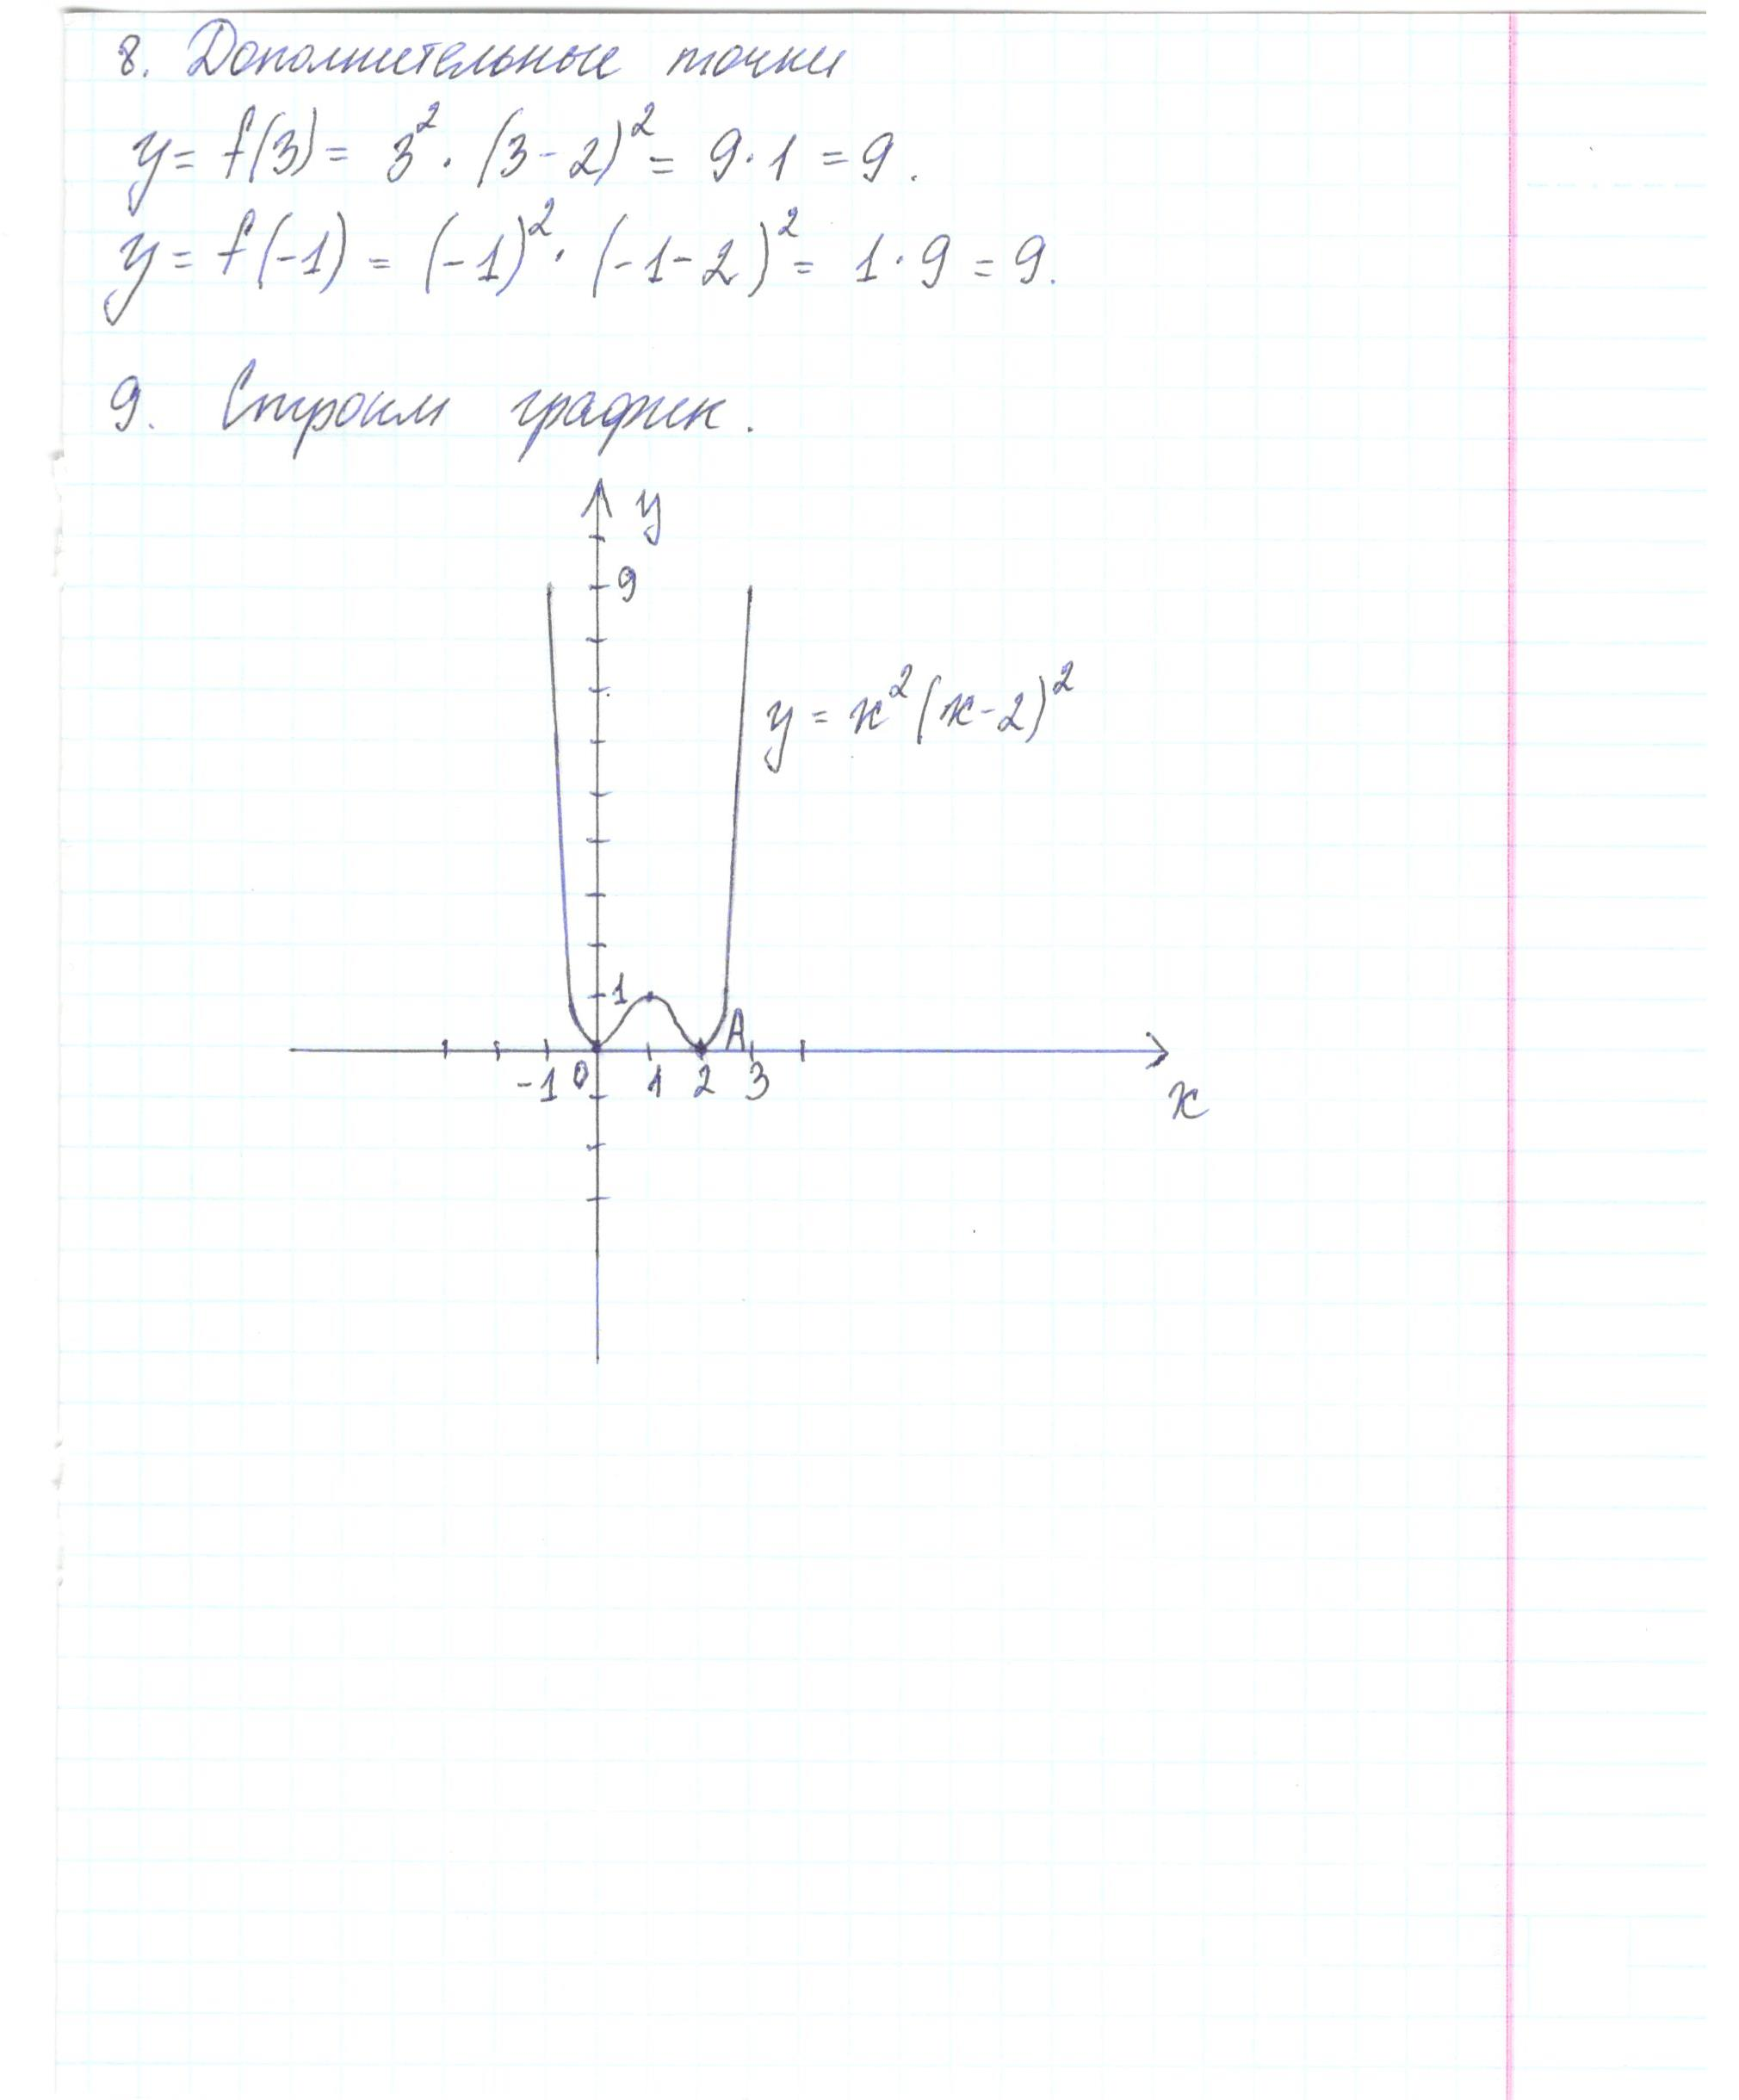 8. Дополнительные точки
y = f(3) = 3² · (3 - 2)² = 9 · 1 = 9.
y = f(-1) = (-1)² · (-1 - 2)² = 1 · 9 = 9.
9. Строим график.
y
9
y = x²(x - 2)²
1
A
-1 0 1 2 3
x